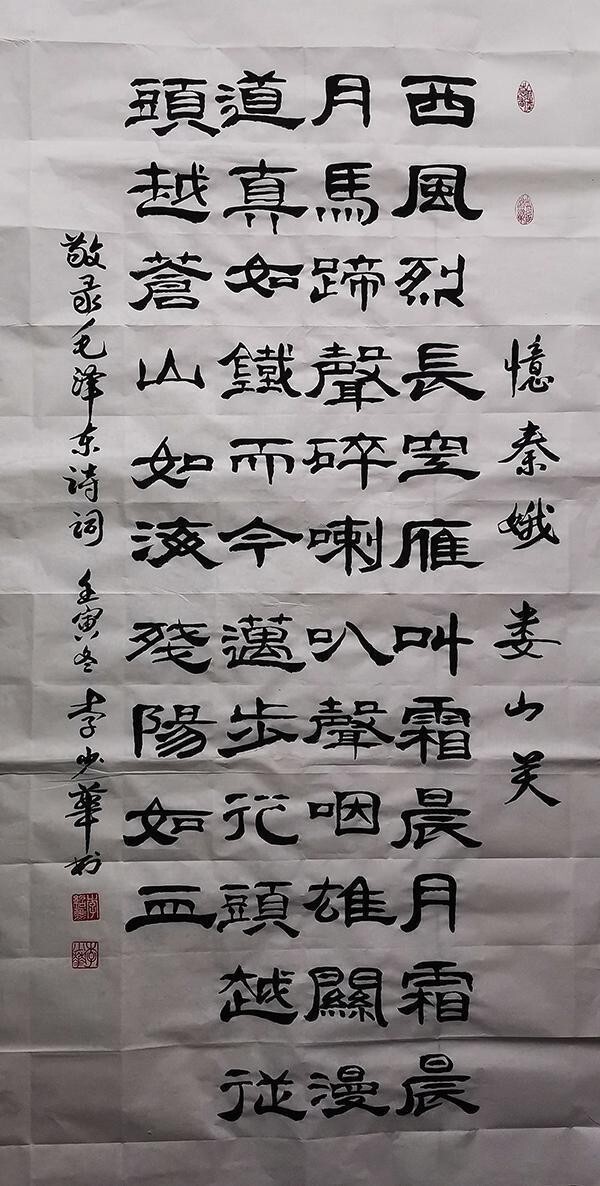 憶秦娥 娄山关
西風烈長空雁叫霜晨月霜晨
月馬蹄聲碎喇叭聲咽雄關漫
道真如鐵而今邁步从頭越從
頭越蒼山如海殘陽如血
敬录毛泽东诗词 壬寅冬 李少華书